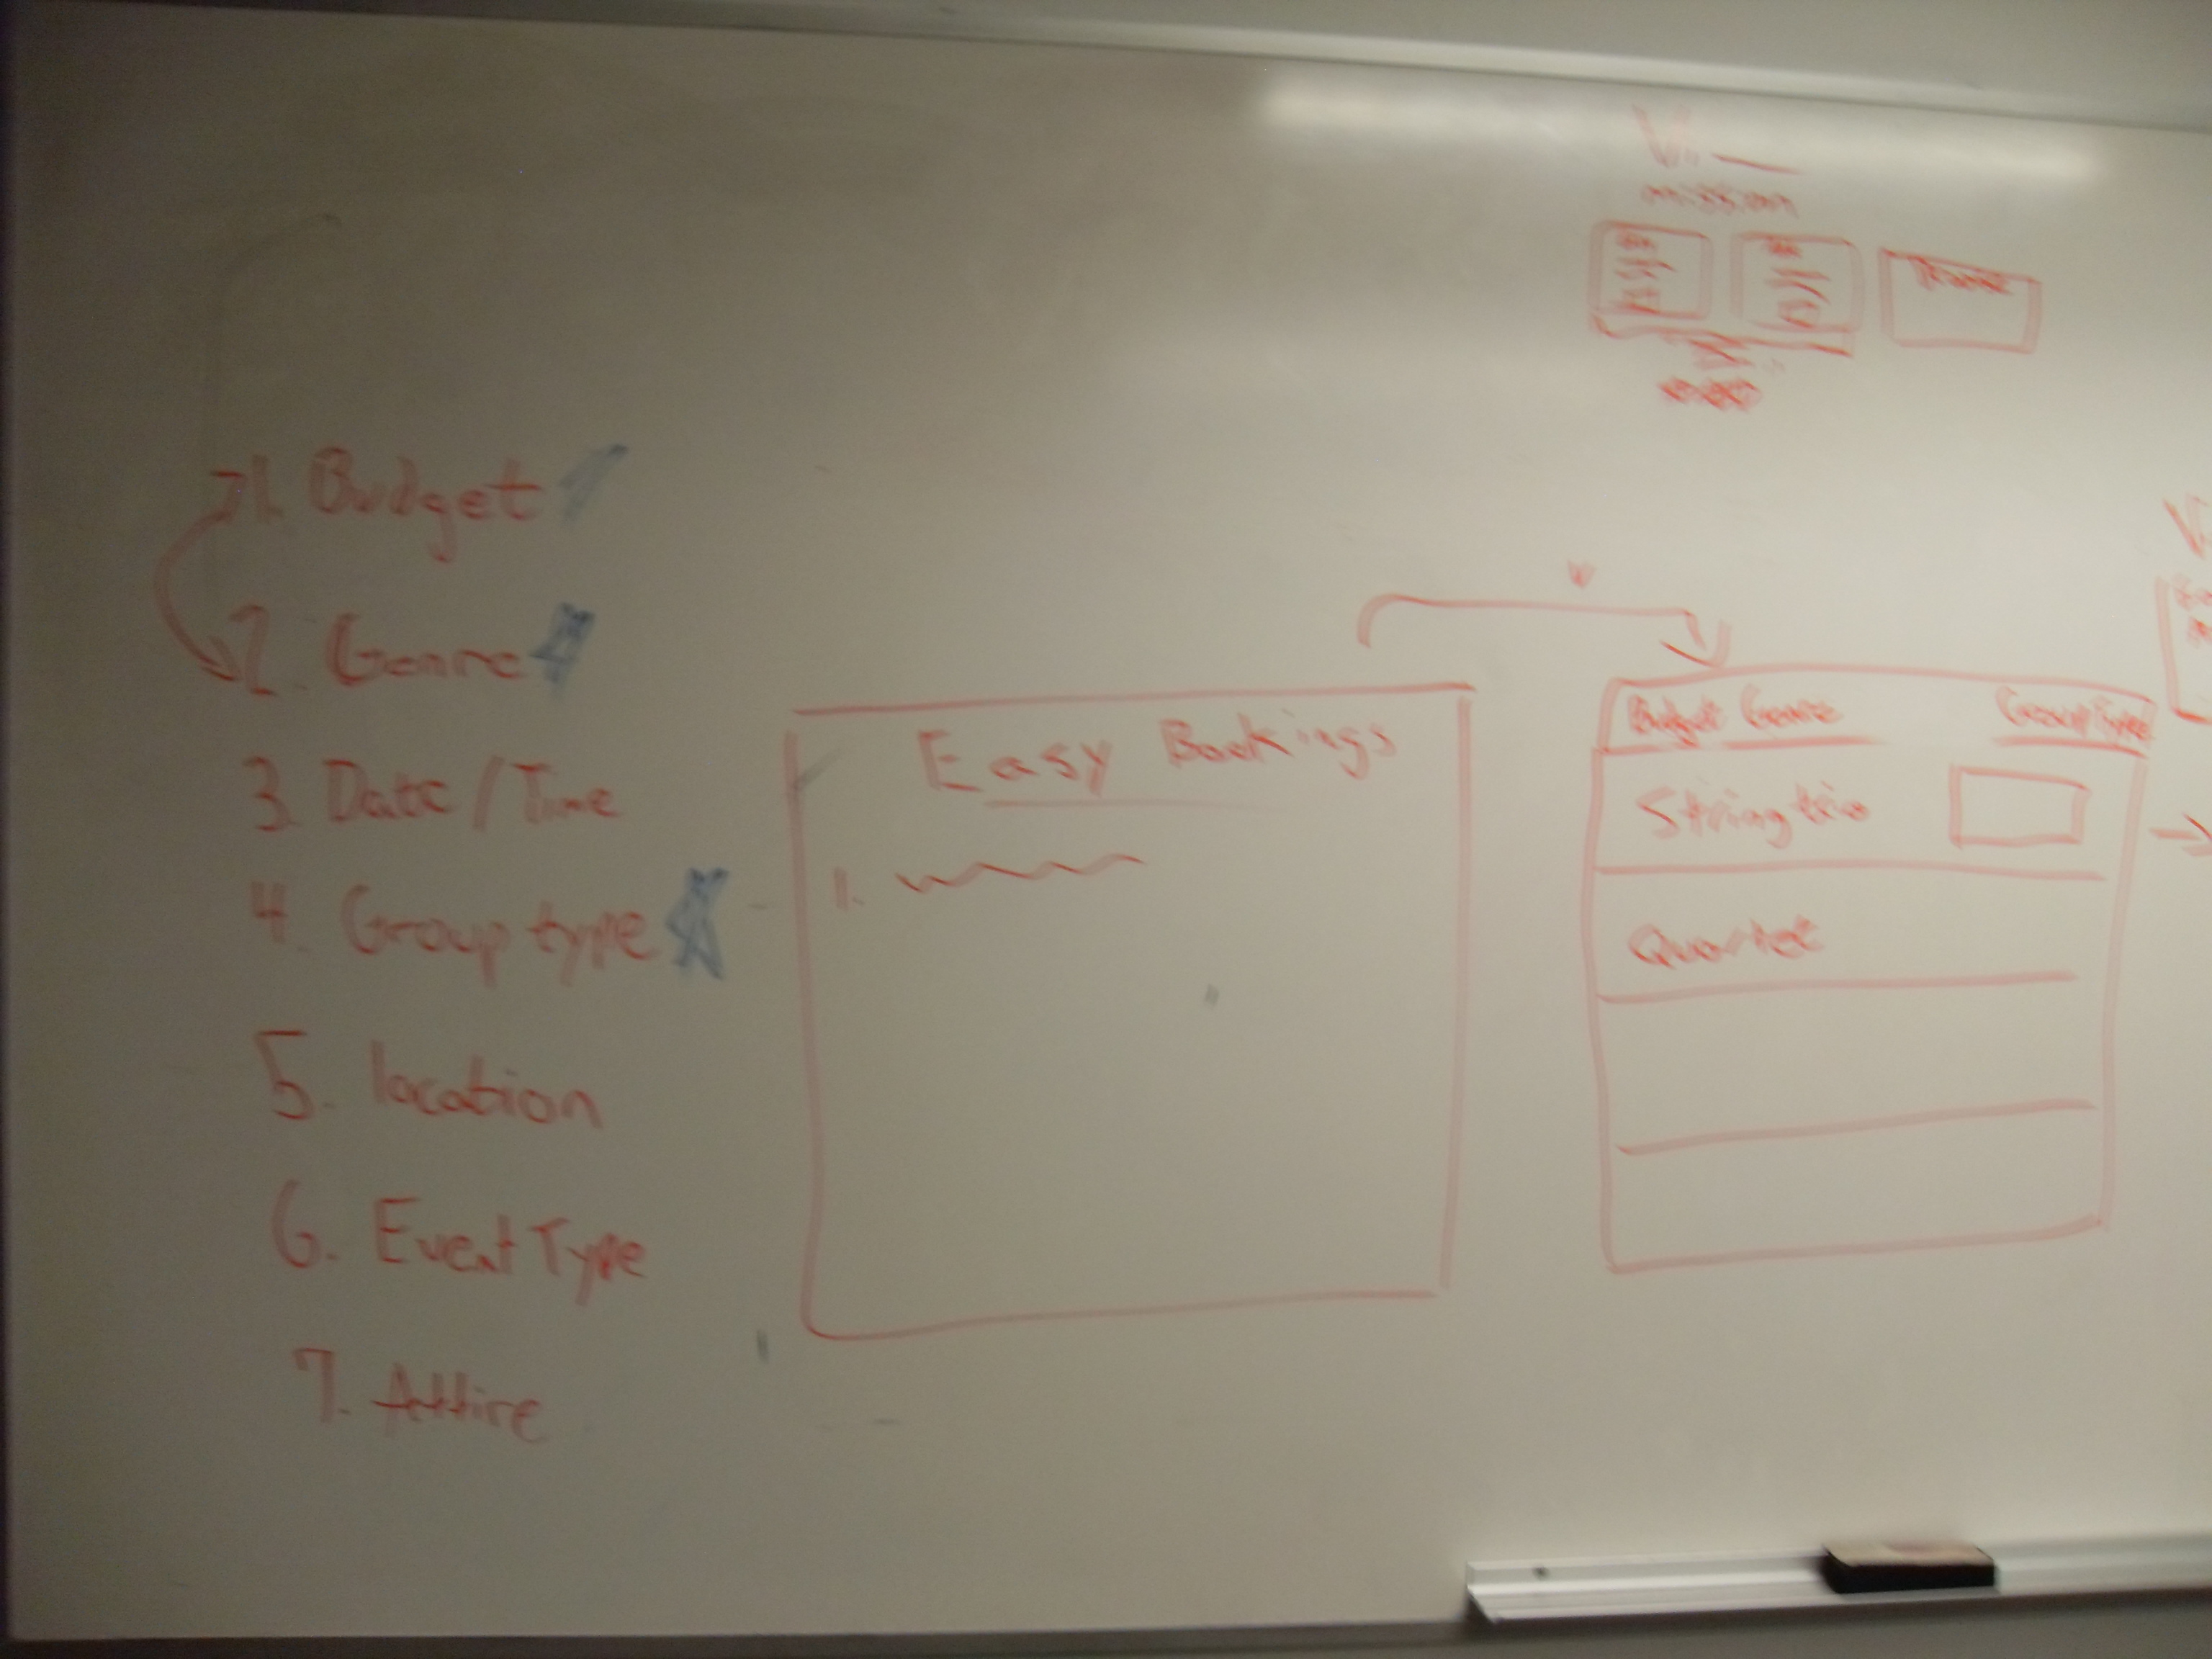 mission
1. Budget
2. Genre
3. Date/Time
4. Group type
5. location
6. Event Type
7. Attire
Easy Bookings
1.
Budget Genre Group Type
String trio
Quartet